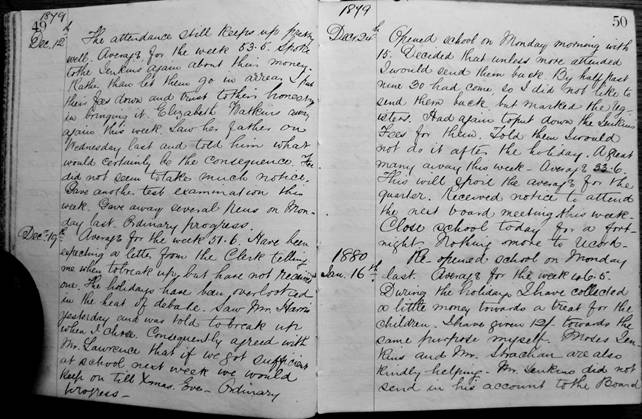 1879
49
Decr 12th The attendance still keeps up pretty
well. Average for the week 53.5. Spoke
to the Jenkins again about their money.
Rather than let them go in arrear I put
their fees down and trust to their honesty
in bringing it. Elizabeth Watkins away
again this week. Saw her father on
Wednesday last and told him what
would certainly be the consequence. He
did not seem to take much notice.
Gave another test examination this
week. Gave away several pens on Mon-
day last. Ordinary progress.
Decr 19th Average for the week 51.6. Have been
expecting a letter from the Clerk telling
me when to break up, but have not received
one. The holidays have been overlooked
in the heat of debate. Saw Mr. Harris
yesterday and was told to break up
when I chose. Consequently agreed with
Mr. Lawrence that if we got sufficient
at school next week we would
keep on till Xmas. Eve. Ordinary
progress—
1879
50
Dec. 24th Opened school on Monday morning with
15. Decided that unless more attended
I would send them back. By half past
nine 30 had come, so I did not like to
send them back but marked the reg-
isters. Had again to put down the Jenkins
Fees for them. Told them I would
not do it after the holiday. A great
many away this week— Average 33.6.
This will spoil the average for the
quarter. Received notice to attend
the next board meeting this week.
Close school today for a fort-
night. Nothing more to record.
1880
Jan. 16th Re-opened school on Monday
last. Average for the week 46.5.
During the holidays I have collected
a little money towards a treat for the
children. I have given 12/- towards the
same purpose myself. Moses Jen-
kins and Mr. Strachan are also
kindly helping. Mr. Jenkins did not
send in his account to the Board